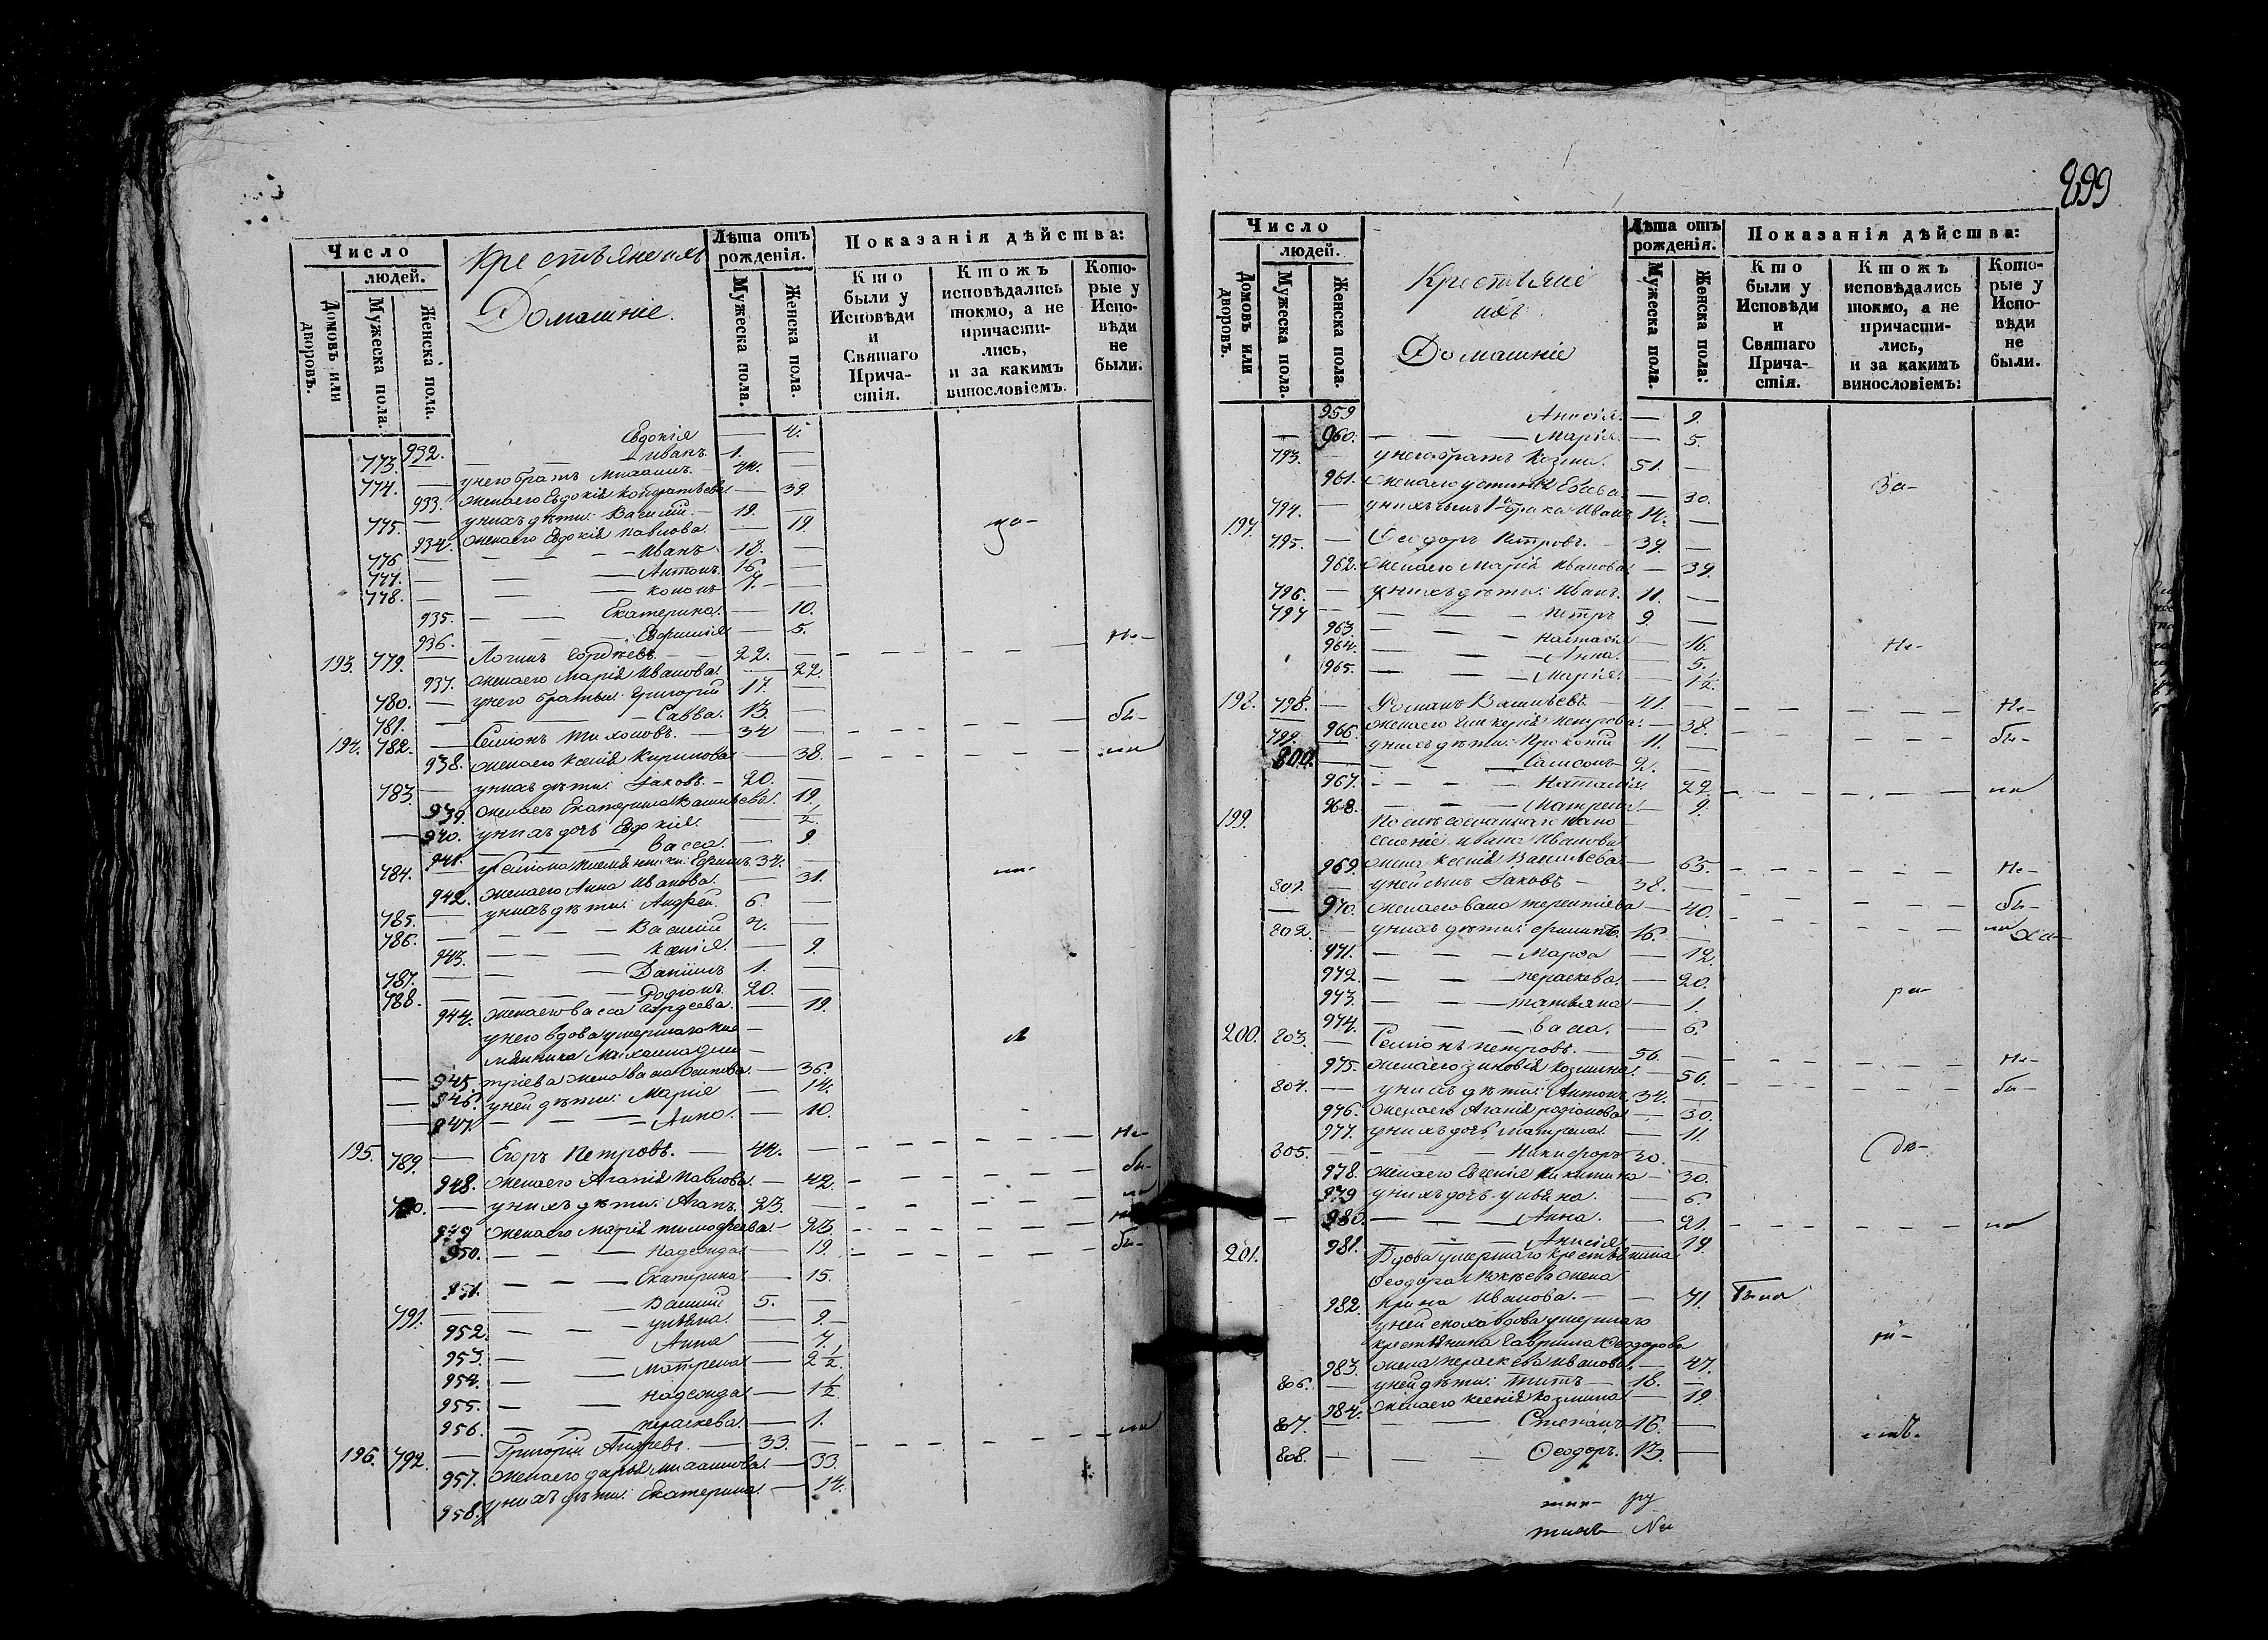 Число
людей.
Домовъ или дворовъ.
Мужеска пола.
Женска пола.
Крестьяне и ихъ
Домашніе.
Лѣта отъ рожденія.
Мужеска пола.
Женска пола.
Показанія дѣйства:
Кто были у Исповѣди и Святаго Причастія.
Ктожъ исповѣдались токмо, а не причастились, и за какимъ винословіемъ.
Которые у Исповѣди не были.
932. Евдокія — 4.
773. — Иванъ 1. —
774. — у него братъ Михаилъ. — 44. —
933. жена его Евдокія Кондратьева — 39.
775. — у нихъ дѣти: Василій. — 19. —
934. жена его Евдокія Павлова. — 19
776 — Иванъ 18. —
777. — Антонъ. 16 —
778. — Кононъ 7. —
935. — Екатерина. — 10.
936. — Евфимія — 5.
193 779. — Логинъ Гордѣевъ. — 22. — Не-
937. жена его Марія Иванова. — 22.
780. — у него братья: Григорій 17. —
781. — Савва. 13. — бы-
194. 782. — Семіонъ Тихоновъ. — 34 — ли
938. жена его Ксенія Кирилова — 38.
783. — у нихъ дѣти: Іаковъ. — 20. —
939. жена его Екатерина Васильева. 19.
940. у нихъ дочь Евдокія. — ½.
941. — Васса. — 9
784. — у Семіона племянники: Ефимъ. 34. —
942. жена его Анна Иванова. — 31.
785. — у нихъ дѣти: Андрей. 6. —
786. — Василій 4. —
943. — Ксенія. — 9.
787. — Даніилъ 1. —
788. — Родіонъ. 20. —
944. жена его Васса Гордеева. — 19.
у него вдова умершаго пле-
мянника Михаила Дми-
945. тріева жена Васса Осипова. — 36.
946. у ней дѣти: Марія — 14.
947. — Анна. — 10.
195. 789. — Егоръ Петровъ. — 44. — Не-
948. жена его Агапія Павлова. — 42. бы-
790. — у нихъ дѣти: Агапъ. 23. — ли
949 жена его Марія Тимофеева. — 23
950. — Надежда — 19. бы-
951. — Екатерина — 15.
791. — Василій 5. —
952. — Ульяна. — 9.
953. — Анна — 7.
954. — Матрена — 2½.
955. — Надежда — 1½
956. — Пераскева. — 1.
196. 792. — Григорій Андреевъ. — 33. — ли
957. жена его Дарья Михаилова. — 33.
958. у нихъ дѣти: Екатерина. — 14.
899
Число
людей.
Домовъ или дворовъ.
Мужеска пола.
Женска пола.
Крестьяне
ихъ
Домашніе
Лѣта отъ рожденія.
Мужеска пола.
Женска пола:
Показанія дѣйства:
Кто были у Исповѣди и Святаго Причастія.
Ктожъ исповѣдались токмо, а не причастились, и за какимъ винословіемъ:
Которые у Исповѣди не были.
959 Анисія. — 9.
960. — Марія. — 5.
793. — у него братъ Козма. 51. —
961. — 30. За-
794. — 14. —
197. 795. — Ѳеодоръ Петровъ. — 39. —
962. жена его Марія Иванова. — 39.
796. — у нихъ дѣти: Иванъ. 11. —
797 — Петръ 9 —
963. — Наталія — 16. Не-
964. — Анна. — 5.
965. — Марія. — 1½.
198. 798. — Романъ Васильевъ — 41. — Не-
966. жена его Гликерія Петрова. — 38. бы-
799. — у нихъ дѣти: Прокопій 11. —
800. — Самсонъ 2. —
967. — Наталія 22 ли
968. — Матрена. — 9.
199.
Ивана Иванова
969. жена Ксенія Васильева — 65. Не-
801. — у ней сынъ Іаковъ — 38. —
970. жена его Васса Терентіева — 40. бы-
802. — у нихъ дѣти: Филипъ. 16. — ли
971. — Марѳа — 12
972. — Пераскева. — 20. ра-
973. — Татьяна — 1.
974. — Васса. — 6.
200. 803. — Семіонъ Петровъ. — 56. — Не-
975. жена его Зиновія Козмина. — 56.
804. — у нихъ дѣти: Антонъ. 34. — бы-
976. жена его Агапія Родіонова — 30.
977. у нихъ дочь Матрена. — 11.
805. — Никифоръ 30. —
978. жена его Евгенія Никитина — 30.
979 у нихъ дочь Ульяна. — 6
980. — Анна. — 21. ли
981. — Анисія — 19
201. Вдова умершаго крестьянина
Ѳеодора жена
982. Ирина Иванова. — 71. Была
у ней сноха вдова умершаго
крестьянина Гавриила Ѳеодорова
983. жена Пераскева Иванова. — 47.
806. — у ней дѣти: Титъ — 18. —
984. жена его Ксенія Козмина — 19
807. — Степанъ 16. —
808. — Ѳеодоръ. 13. —